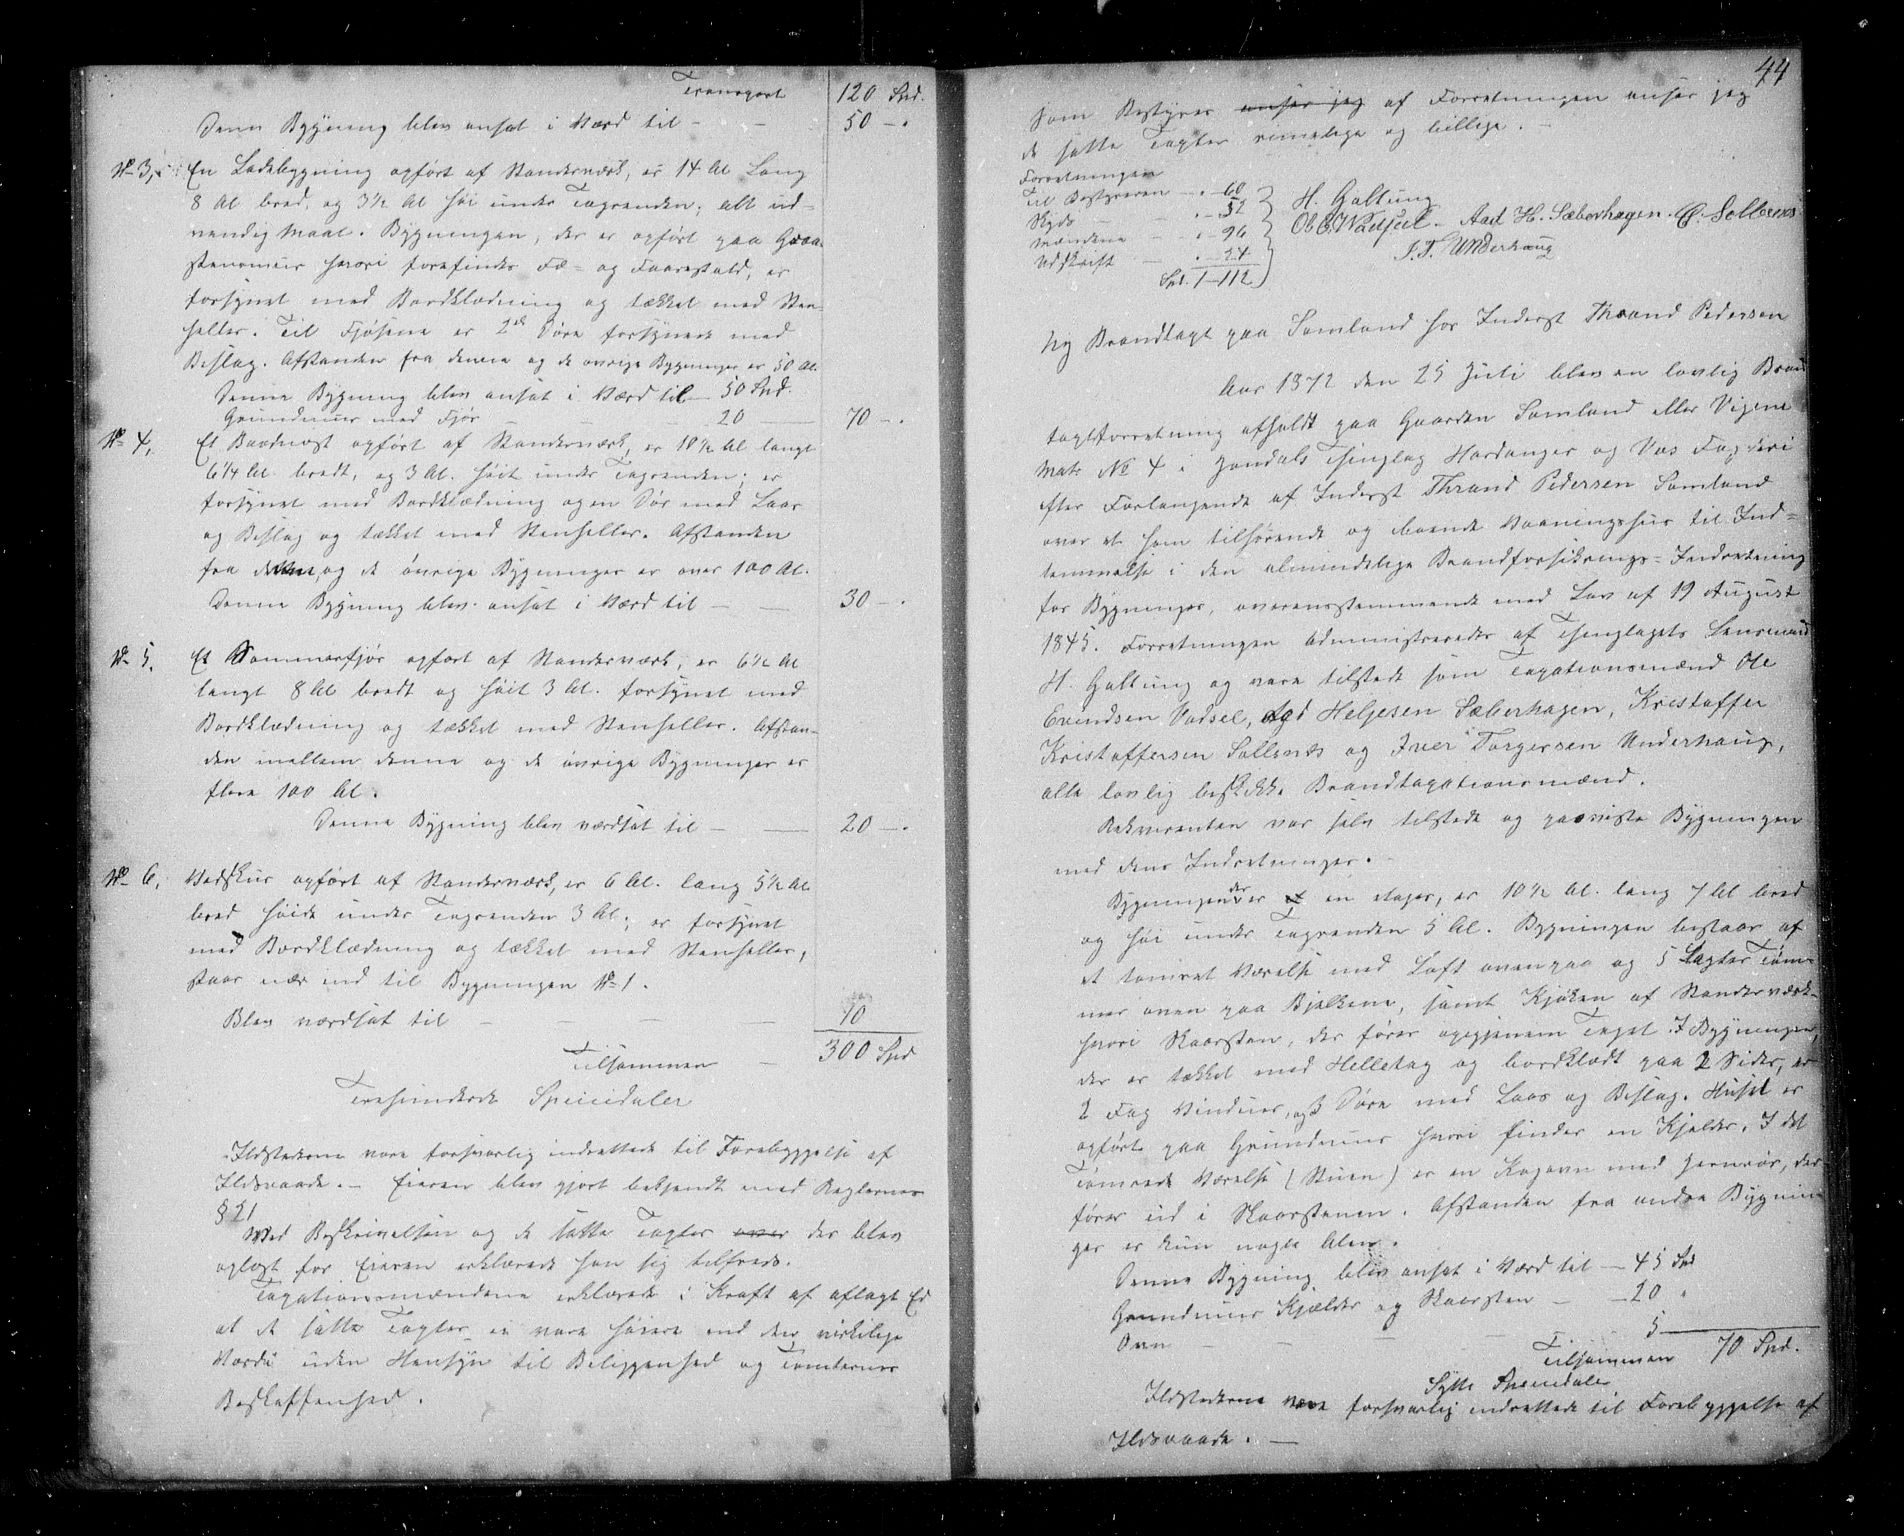 Transport 120 Spd.
Denne Bygning blev ansat i Værd til — 50 — .
No 3, En Ladebygning opført af Standerværk, er 14 Al Lang
8 Al bred, og 3½ Al høi under Tagrenden; alt ud-
vendig Maal. Bygningen, der er opført paa Graa-
steensmuur hvori forefindes Fæ- og Faarestald, er
forsynet med Bordklædning og tækket med Sten-
heller. Til Fjøsene er 2de Døre forsynede med
Beslag. Afstanden fra denne og de øvrige Bygninger er 50 Al.
Denne Bygning blev ansat i Værd til — 50 Spd.
Grundmuur med Fjøs — 20 — 70 — .
No 4, Et Baadnøst opført af Standerværk, er 18½ Al langt
6¼ Al. bredt, og 3 Al. høit under Tagrenden; er
forsynet med Bordklædning og en Dør med Laas
og Beslag og tækket med Stenheller. Afstanden
fra dette og de øvrige Bygninger er over 100 Al.
Denne Bygning blev ansat i Værd til — 30 — .
No 5. Et Sommerfjøs opført af Standerværk, er 6½ Al
langt 8 Al bredt og høit 3 Al. forsynet med
Bordklædning og tækket med Stenheller. Afstan-
den mellem denne og de øvrige Bygninger er
flere 100 Al.
Denne Bygning blev værdsat til — 20 — .
No 6, Vedskur opført af Standerværk, er 6 Al. lang 5½ Al
bred høide under Tagrenden 3 Al; er forsynet
med Bordklædning og tækket med Stenheller,
staar nær ind til Bygningen No 1.
Blev værdsat til — 10
Tilsammen — 300 Spd
Trehundrede Speciedaler
Ildstederne vare forsvarlig indrettede til Forebyggelse af
Ildsvaade. — Eieren blev gjort bekjendt med Reglernes
§ 21
Med Beskrivelsen og de satte Taxter over der blev
oplæst for Eieren erklærede han sig tilfreds.
Taxationsmændene erklærede i Kraft af aflagt Ed
at de satte Taxter ei vare høiere end den virkelige
Værdi uden Hensyn til Beliggenhed og Tomternes
Beskaffenhed.
44
Som Bestyrer anser jeg af Forretningen anser jeg
de satte Taxter rimelige og billige. —
Forretningen
Til Bestyreren — . — 60
Skyds — . — 52
Mændene — . — 96
Udskrift — . — 24
Spd. 1 — 112
H. Galtung
Ol. E. Wadsel. Aad H. Sæberhagen. C. Sollesnes
I. T. Underhaug
Ny Brandtaxt paa Samland hos Inderst Thrond Pedersen
Aar 1872 den 25 Juli blev en lovlig Brand
taxtforretning afholdt paa Gaarden Samland eller Vigene
Matr No 4 i Jondals Thinglag Hardanger og Vos Fogderi
efter Forlangende af Inderst Thrond Pedersen Samland
over et ham tilhørende og boende Vaaningshus til Ind-
lemmelse i den almindelige Brandforsikrings-Indretning
for Bygninger, overensstemmende med Lov af 19 August
1845. Forretningen administreredes af Thinglagets Lensmand
H. Galtung og vare tilstede som Taxationsmænd Ole
Evindsen Vadsel, Aad Heljesen Sæberhagen, Kristoffer
Kristoffersen Sollesnes og Iver Torgersen Underhaug,
alle lovlig beskikke Brandtaxationsmænd.
Rekvirenten var selv tilstede og paaviste Bygningen
med dens Indretninger. —
Bygningen der er et en etages, er 10½ Al. lang 7 Al bred
og høi under Tagrenden 5 Al. Bygningen bestaar af
et tømret Værelse med Loft ovenpaa og 5 Lagter Tøm-
mer oven paa Bjelkerne, samt Kjøken af Standerværk
hvori Skorsten, der fører op gjennem Taget. I Bygningen,
der er tækket med Helletag og bordklædt paa 2 Sider, er
2 Fag Vinduer, og 3 Døre med Laas og Beslag. Huset er
opført paa Grundmuur hvori findes en Kjelder. I det
tømrede Værelse (Stuen) er en Kogovn med Jernrør, der
fører ud i Skorstenen. Afstanden fra andre Bygnin-
ger er kun nogle Alen.
Denne Bygning blev ansat i Værd til — 45 Spd
Grundmuur Kjælder og Skorsten — 20 "
Ovn — 5
Tilsammen 70 Spd.
Sytti Speciedaler
Ildstederne vare forsvarlig indrettede til Forebyggelse af
Ildsvaade. —